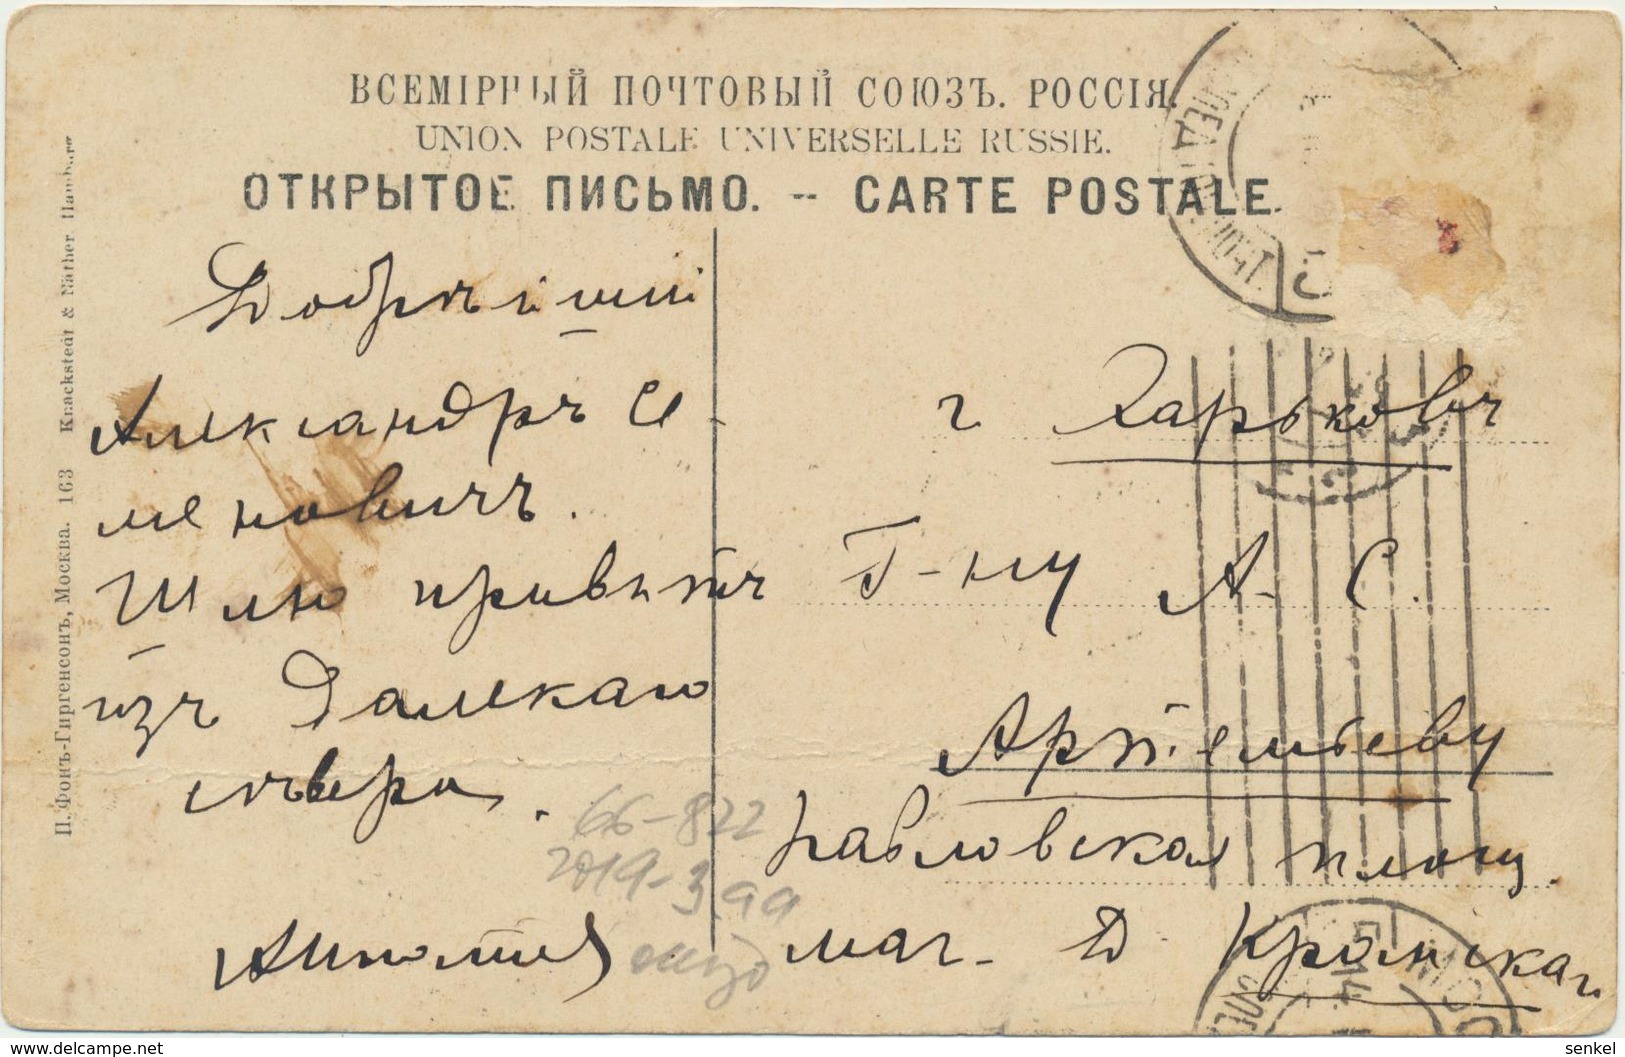 ВСЕМІРНЫЙ ПОЧТОВЫЙ СОЮЗЪ. РОССІЯ.
UNION POSTALE UNIVERSELLE RUSSIE.
ОТКРЫТОЕ ПИСЬМО. -- CARTE POSTALE.
П. Фонъ-Гиргенсонъ, Москва. 163 Knackstedt & Näther, Hamburg
Добрѣйшій
Александръ Се-
меновичъ.
Шлю привѣтъ
изъ далекаго
сѣвера.
г. Харьковъ
Г-ну А. С.
Артемьеву
Павловская площ.
маг. Д. Кромская
66-822
2019-3.99
senkel